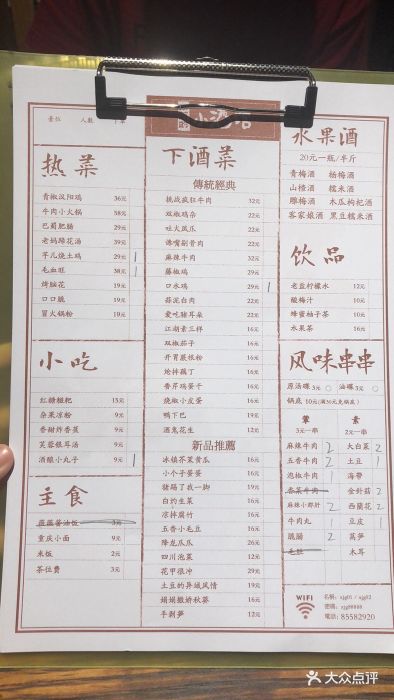 台位 人数
热菜
青椒汉阳鸡 36元
牛肉小火锅 58元
巴蜀肥肠 29元
老妈蹄花汤 39元
芋儿烧土鸡 29元 1
毛血旺 38元 1
烤脑花 19元
口口脆 19元
冒火锅粉 19元
小吃
红糖糍粑 15元
杂果凉粉 9元
香甜炸香蕉 9元
芙蓉银耳汤 9元
酒酿小丸子 9元 1
主食
重庆小面 9元
米饭 2元
茶位费 3元
下酒菜
傳統經典
挑战疯狂牛肉 32元
双椒鸡杂 22元
吐火凤瓜 29元
馋嘴剔骨肉 29元
麻辣牛肉 32元
藤椒鸡 29元
口水鸡 29元 1
蒜泥白肉 22元
爱吃猪耳朵 22元
江湖素三样 16元
双椒茄子 16元
开胃蕨根粉 16元
炝拌藕丁 16元
香芹鸡蛋干 16元
烧椒小皮蛋 16元
鸭下巴 19元
酒鬼花生 12元
新品推薦
冰镇芥菜黄瓜 16元
小个子蛋蛋 16元
猪踢了我一脚 19元
白灼生菜 16元
凉拌腐竹 16元
五香小毛豆 16元
降龙瓜瓜 26元
四川泡菜 12元
花甲很冲 29元
土豆的异域风情 19元
娟娟撒娇秋葵 16元
手剥笋 12元
水果酒
20元一瓶/半斤
青梅酒 杨梅酒
山楂酒 糯米酒
雕梅酒 木瓜枸杞酒
客家娘酒 黑豆糯米酒
饮品
老盐柠檬水 12元
酸梅汁 10元
蜂蜜柚子茶 10元
水果茶 16元
风味串串
原汤碟 3元 油碟 3元
锅底 10元(满50元免锅底)
荤 素
3元一串 2元一串
麻辣牛肉 2 大白菜 2
五香牛肉 2 土豆 1
泡椒牛肉 1 海带
香菜牛肉 金針菇 2
麻辣小郡肝 2 西蘭花 2
牛肉丸 1 豆皮 1
脆腸 2 萵筍
毛肚 木耳
WIFI
名称:xjg01 / xjg02
密碼:xjg88888
電話:85582920
大众点评